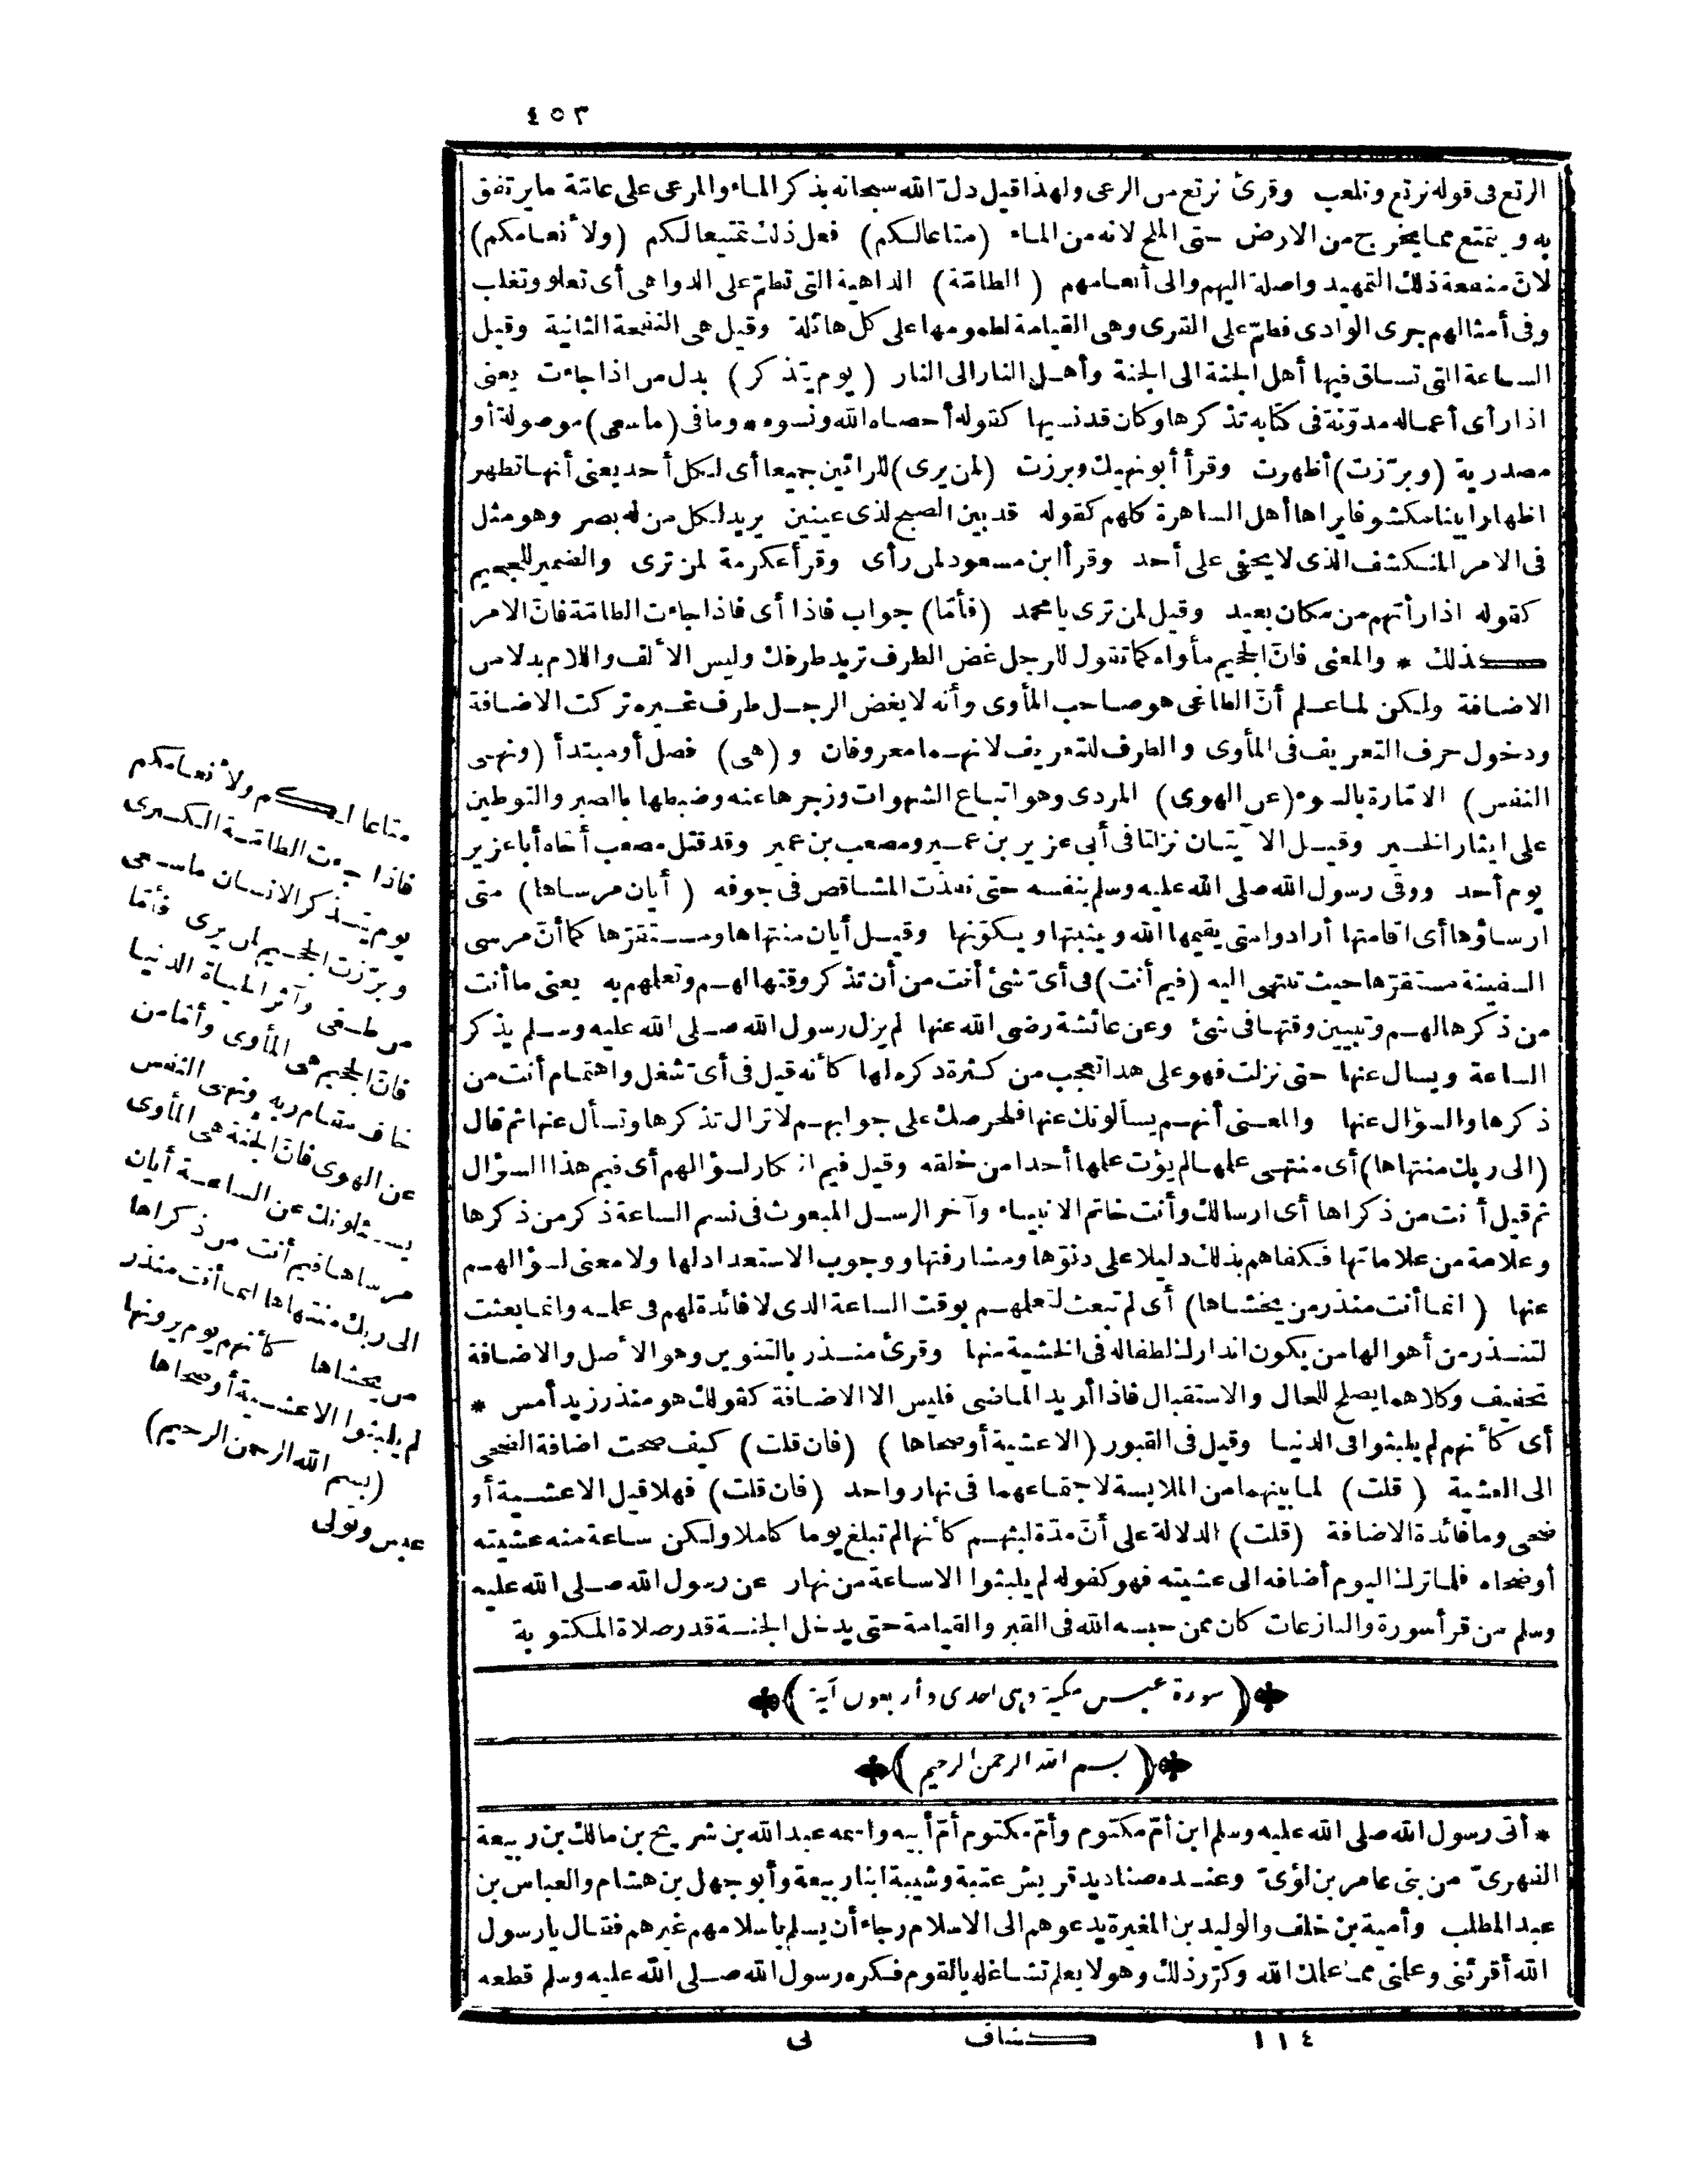 ٤٥٣
الرتع فى قوله نرتع ونلعب وقرئ نرتع من الرعى ولهذا قيل دلّ الله سبحانه بذكر الماء والمرعى على عامّة ما يرتفق
به ويتمتع مما يخرج من الارض حتى الملح لانه من الماء (متاعا لكم) فعل ذلك تمتيعا لكم (ولأنعامكم)
لانّ منفعة ذلك التمهيد واصلة اليهم والى أنعامهم (الطامّة) الداهية التى تطمّ على الدواهى أى تعلو وتغلب
وفى أمثالهم جرى الوادى فطمّ على القرى وهى القيامة لطمومها على كل هائلة وقيل هى النفخة الثانية وقيل
الساعة التى تساق فيها أهل الجنة الى الجنة وأهل النار الى النار (يوم يتذكر) بدل من اذا جاءت يعنى
اذا رأى أعماله مدوّنة فى كتابه تذكرها وكان قد نسيها كقوله أحصاه الله ونسوه * وما فى (ما سعى) موصولة أو
مصدرية (وبرّزت) أظهرت وقرأ أبو نهيك وبرزت (لمن يرى) للرائين جميعا أى لكل أحد يعنى أنها تظهر
اظهارا بينا مكشوفا يراها أهل الساهرة كلهم كقوله قد بين الصبح لذى عينين يريد لكل من له بصر وهو مثل
فى الامر المنكشف الذى لا يخفى على أحد وقرأ ابن مسعود لمن رأى وقرأ عكرمة لمن ترى والضمير للجحيم
كقوله اذا رأتهم من مكان بعيد وقيل لمن ترى يا محمد (فأمّا) جواب فاذا أى فاذا جاءت الطامّة فانّ الامر
كذلك * والمعنى فانّ الجحيم مأواه كما تقول للرجل غض الطرف تريد طرفك وليس الألف واللام بدلا من
الاضافة ولكن لما علم أنّ الطاغى هو صاحب المأوى وأنه لا يغض الرجل طرف غيره تركت الاضافة
ودخول حرف التعريف فى المأوى والطرف للتعريف لانهما معروفان و (هى) فصل أو مبتدأ (ونهى
النفس) الامّارة بالسوء (عن الهوى) المردى وهو اتباع الشهوات وزجرها عنه وضبطها بالصبر والتوطين
على ايثار الخير وقيل الآيتان نزلتا فى أبى عزير بن عمير ومصعب بن عمير وقد قتل مصعب أخاه أبا عزير
يوم أحد ووقى رسول الله صلى الله عليه وسلم بنفسه حتى نفذت المشاقص فى جوفه (أيان مرساها) متى
ارساؤها أى اقامتها أرادوا متى يقيمها الله ويثبتها ويكوّنها وقيل أيان منتهاها ومستقرّها كما أنّ مرسى
السفينة مستقرّها حيث تنتهى اليه (فيم أنت) فى أىّ شئ أنت من أن تذكر وقتها لهم وتعلمهم به يعنى ما أنت
من ذكرها لهم وتبيين وقتها فى شئ وعن عائشة رضى الله عنها لم يزل رسول الله صلى الله عليه وسلم يذكر
الساعة ويسأل عنها حتى نزلت فهو على هذا تعجب من كثرة ذكره لها كأنه قيل فى أىّ شغل واهتمام أنت من
ذكرها والسؤال عنها والمعنى أنهم يسألونك عنها فلحرصك على جوابهم لا تزال تذكرها وتسأل عنها ثم قال
(الى ربك منتهاها) أى منتهى علمها لم يؤت علمها أحدا من خلقه وقيل فيم انكار لسؤالهم أى فيم هذا السؤال
ثم قيل أنت من ذكراها أى ارسالك وأنت خاتم الانبياء وآخر الرسل المبعوث فى نسم الساعة ذكر من ذكرها
وعلامة من علاماتها فكفاهم بذلك دليلا على دنوّها ومشارفتها ووجوب الاستعداد لها ولا معنى لسؤالهم
عنها (انما أنت منذر من يخشاها) أى لم تبعث لتعلمهم بوقت الساعة الذى لا فائدة لهم فى علمه وانما بعثت
لتنذر من أهوالها من يكون انذارك لطفا له فى الخشية منها وقرئ منذر بالتنوين وهو الأصل والاضافة
تخفيف وكلاهما يصلح للحال والاستقبال فاذا أريد الماضى فليس الا الاضافة كقولك هو منذر زيد أمس *
أى كأنهم لم يلبثوا فى الدنيا وقيل فى القبور (الا عشية أو ضحاها) (فان قلت) كيف صحت اضافة الضحى
الى العشية (قلت) لما بينهما من الملابسة لاجتماعهما فى نهار واحد (فان قلت) فهلا قيل الا عشية أو
ضحى وما فائدة الاضافة (قلت) الدلالة على أنّ مدّة لبثهم كأنها لم تبلغ يوما كاملا ولكن ساعة منه عشيته
أو ضحاه فلما ترك اليوم أضافه الى عشيته فهو كقوله لم يلبثوا الا ساعة من نهار عن رسول الله صلى الله عليه
وسلم من قرأ سورة والنازعات كان ممن حبسه الله فى القبر والقيامة حتى يدخل الجنة قدر صلاة المكتوبة
(سورة عبس مكية وهى احدى وأربعون آية)
(بسم الله الرحمن الرحيم)
* أتى رسول الله صلى الله عليه وسلم ابن أمّ مكتوم وأمّ مكتوم أمّ أبيه واسمه عبد الله بن شريح بن مالك بن ربيعة
الفهرىّ من بنى عامر بن لؤىّ وعنده صناديد قريش عتبة وشيبة ابنا ربيعة وأبو جهل بن هشام والعباس بن
عبد المطلب وأمية بن خلف والوليد بن المغيرة يدعوهم الى الاسلام رجاء أن يسلم باسلامهم غيرهم فقال يا رسول
الله أقرئنى وعلمنى مما علمك الله وكرّر ذلك وهو لا يعلم تشاغله بالقوم فكره رسول الله صلى الله عليه وسلم قطعه
متاعا لكم ولأنعامكم
فاذا جاءت الطامّة الكبرى
يوم يتذكر الانسان ما سعى
وبرّزت الجحيم لمن يرى فأمّا
من طغى وآثر الحياة الدنيا
فانّ الجحيم هى المأوى وأمّا من
خاف مقام ربه ونهى النفس
عن الهوى فانّ الجنة هى المأوى
يسئلونك عن الساعة أيان
مرساها فيم أنت من ذكراها
الى ربك منتهاها انما أنت منذر
من يخشاها كأنهم يوم يرونها
لم يلبثوا الا عشية أو ضحاها
(بسم الله الرحمن الرحيم)
عبس وتولى
١١٤ كشاف نى